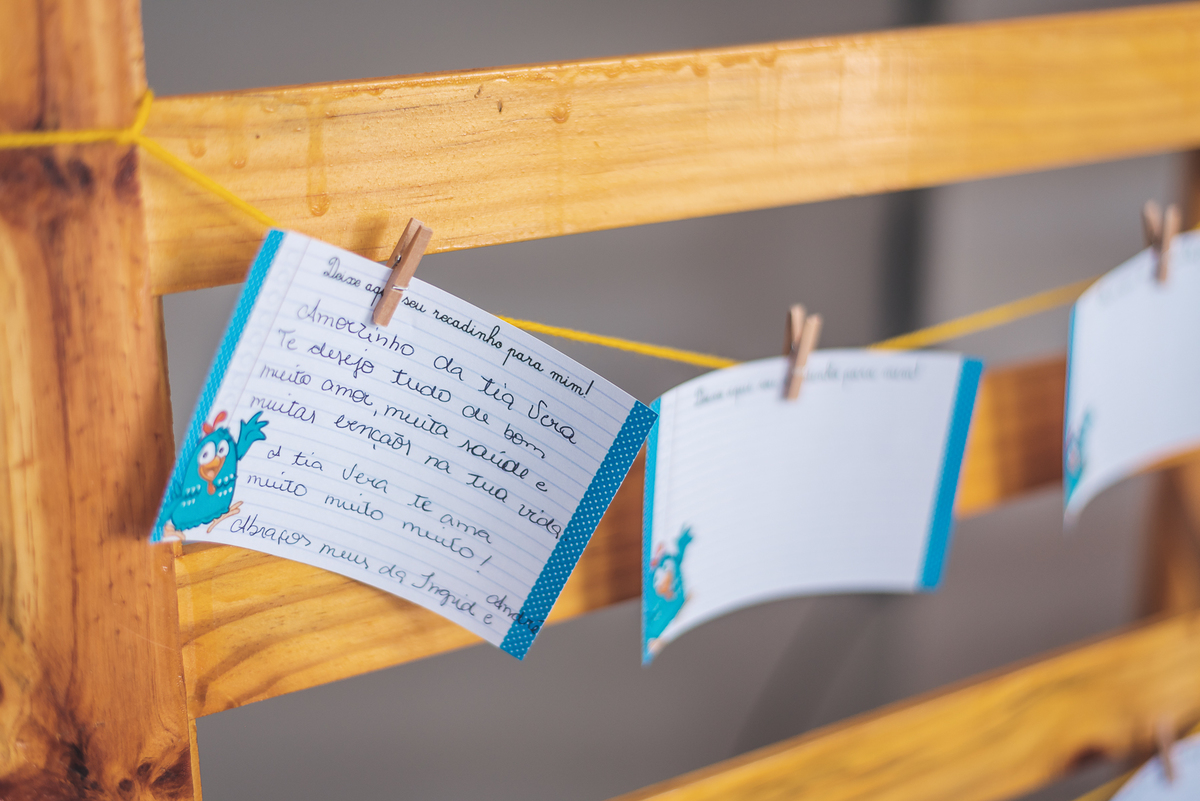 Deixe aqui seu recadinho para mim!
Amorzinho da tia Vera
Te desejo tudo de bom
muito amor, muita saúde e
muitas bençaõs na tua vida
A tia Vera te ama
muito muito muito!
Abraços meus da Ingrid e
Deixe aqui seu para mim!